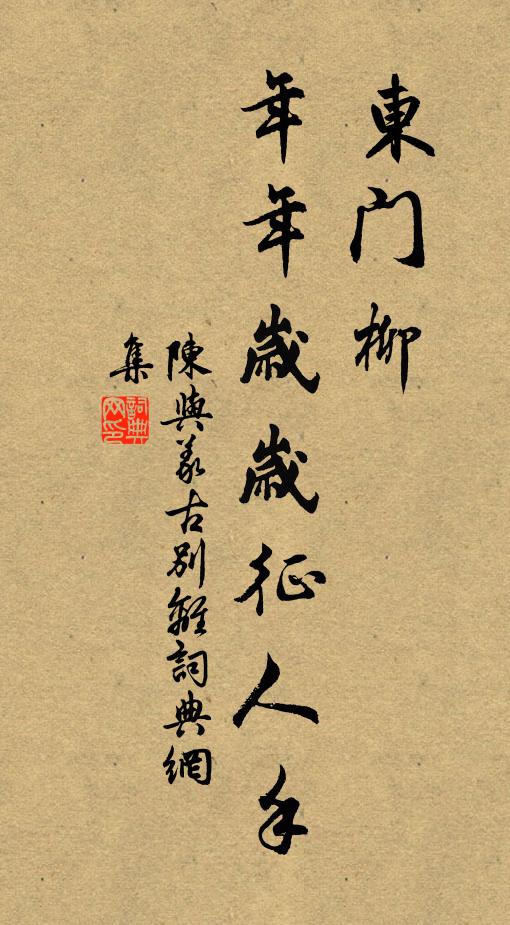 東門柳
年年歲歲征人手
陳與義古別離詞典網
集
詞典网印